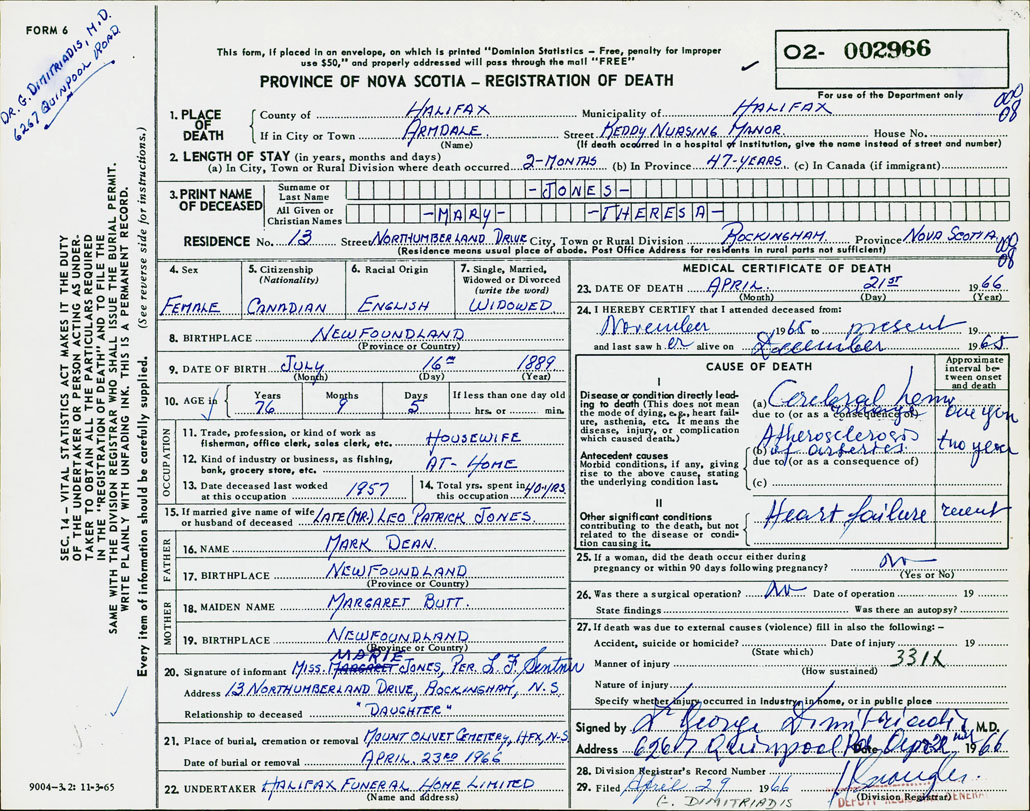 FORM 6
DR. G. DIMITRIADIS, M.D.
6267 QUINPOOL ROAD
This form, if placed in an envelope, on which is printed "Dominion Statistics – Free, penalty for improper
use $50," and properly addressed will pass through the mail "FREE"
PROVINCE OF NOVA SCOTIA – REGISTRATION OF DEATH
02- 002966
For use of the Department only
000
08
1. PLACE OF DEATH
County of HALIFAX Municipality of HALIFAX
If in City or Town ARMDALE Street KEDDY NURSING MANOR. House No.
(Name) (If death occurred in a hospital or institution, give the name instead of street and number)
2. LENGTH OF STAY (in years, months and days)
(a) In City, Town or Rural Division where death occurred 2-MONTHS (b) In Province 47-YEARS. (c) In Canada (if immigrant)
3. PRINT NAME OF DECEASED
Surname or Last Name -JONES-
All Given or Christian Names -MARY- -THERESA-
RESIDENCE No. 13 Street NORTHUMBERLAND DRIVE City, Town or Rural Division ROCKINGHAM. Province NOVA SCOTIA
(Residence means usual place of abode. Post Office Address for residents in rural parts not sufficient)
000
08
4. Sex FEMALE
5. Citizenship (Nationality) CANADIAN
6. Racial Origin ENGLISH
7. Single, Married, Widowed or Divorced (write the word) WIDOWED
8. BIRTHPLACE NEWFOUNDLAND
(Province or Country)
9. DATE OF BIRTH JULY 16TH 1889
(Month) (Day) (Year)
10. AGE in Years 76 Months 9 Days 5 If less than one day old hrs. or min.
OCCUPATION
11. Trade, profession, or kind of work as
fisherman, office clerk, sales clerk, etc. HOUSEWIFE
12. Kind of industry or business, as fishing,
bank, grocery store, etc. AT-HOME
13. Date deceased last worked
at this occupation 1957
14. Total yrs. spent in
this occupation 40-YRS.
15. If married give name of wife
or husband of deceased LATE (MR.) LEO PATRICK JONES.
FATHER
16. NAME MARK DEAN.
17. BIRTHPLACE NEWFOUNDLAND
(Province or Country)
MOTHER
18. MAIDEN NAME MARGARET BUTT.
19. BIRTHPLACE NEWFOUNDLAND
(Province or Country)
MARIE
20. Signature of informant MISS. MARGARET JONES, PER. L. F. Sentner
Address 13 NORTHUMBERLAND DRIVE, ROCKINGHAM, N.S
Relationship to deceased "DAUGHTER"
21. Place of burial, cremation or removal MOUNT OLIVET CEMETERY, HFX, N-S
Date of burial or removal APRIL. 23RD 1966
22. UNDERTAKER HALIFAX FUNERAL HOME LIMITED
(Name and address)
MEDICAL CERTIFICATE OF DEATH
23. DATE OF DEATH APRIL. 21ST 1966
(Month) (Day) (Year)
24. I HEREBY CERTIFY that I attended deceased from:
November 1965 to present 19
and last saw her alive on December 1965
CAUSE OF DEATH
Approximate interval between onset and death
I
Disease or condition directly leading to death (This does not mean
the mode of dying, e.g., heart failure, asthenia, etc. It means the
disease, injury, or complication
which caused death.)
(a) Cerebral hemo
due to (or as a consequence of)
Antecedent causes
Morbid conditions, if any, giving
rise to the above cause, stating
the underlying condition last.
(b) Atherosclerosis of arteries two year
due to (or as a consequence of)
(c)
II
Other significant conditions
contributing to the death, but not
related to the disease or condition causing it.
Heart failure recent
25. If a woman, did the death occur either during
pregnancy or within 90 days following pregnancy? no
(Yes or No)
26. Was there a surgical operation? no Date of operation 19
State findings Was there an autopsy?
27. If death was due to external causes (violence) fill in also the following:-
Accident, suicide or homicide? Date of injury 19
(State which)
Manner of injury 331X
(How sustained)
Nature of injury
Specify whether injury occurred in Industry, in home, or in public place
Signed by Dr George Dimitriadis M.D.
Address 6267 Quinpool Rd. Date April 22nd 1966
28. Division Registrar's Record Number
29. Filed April 29 1966
(Division Registrar)
DEPUTY REGISTRAR GENERAL
G. DIMITRIADIS
SEC. 14 – VITAL STATISTICS ACT MAKES IT THE DUTY
OF THE UNDERTAKER OR PERSON ACTING AS UNDERTAKER TO OBTAIN ALL THE PARTICULARS REQUIRED
IN THE "REGISTRATION OF DEATH" AND TO FILE THE
SAME WITH THE DIVISION REGISTRAR WHO SHALL ISSUE THE BURIAL PERMIT.
WRITE PLAINLY WITH UNFADING INK. THIS IS A PERMANENT RECORD.
Every item of information should be carefully supplied. (See reverse side for instructions.)
9004-3. 2: 11-3-65